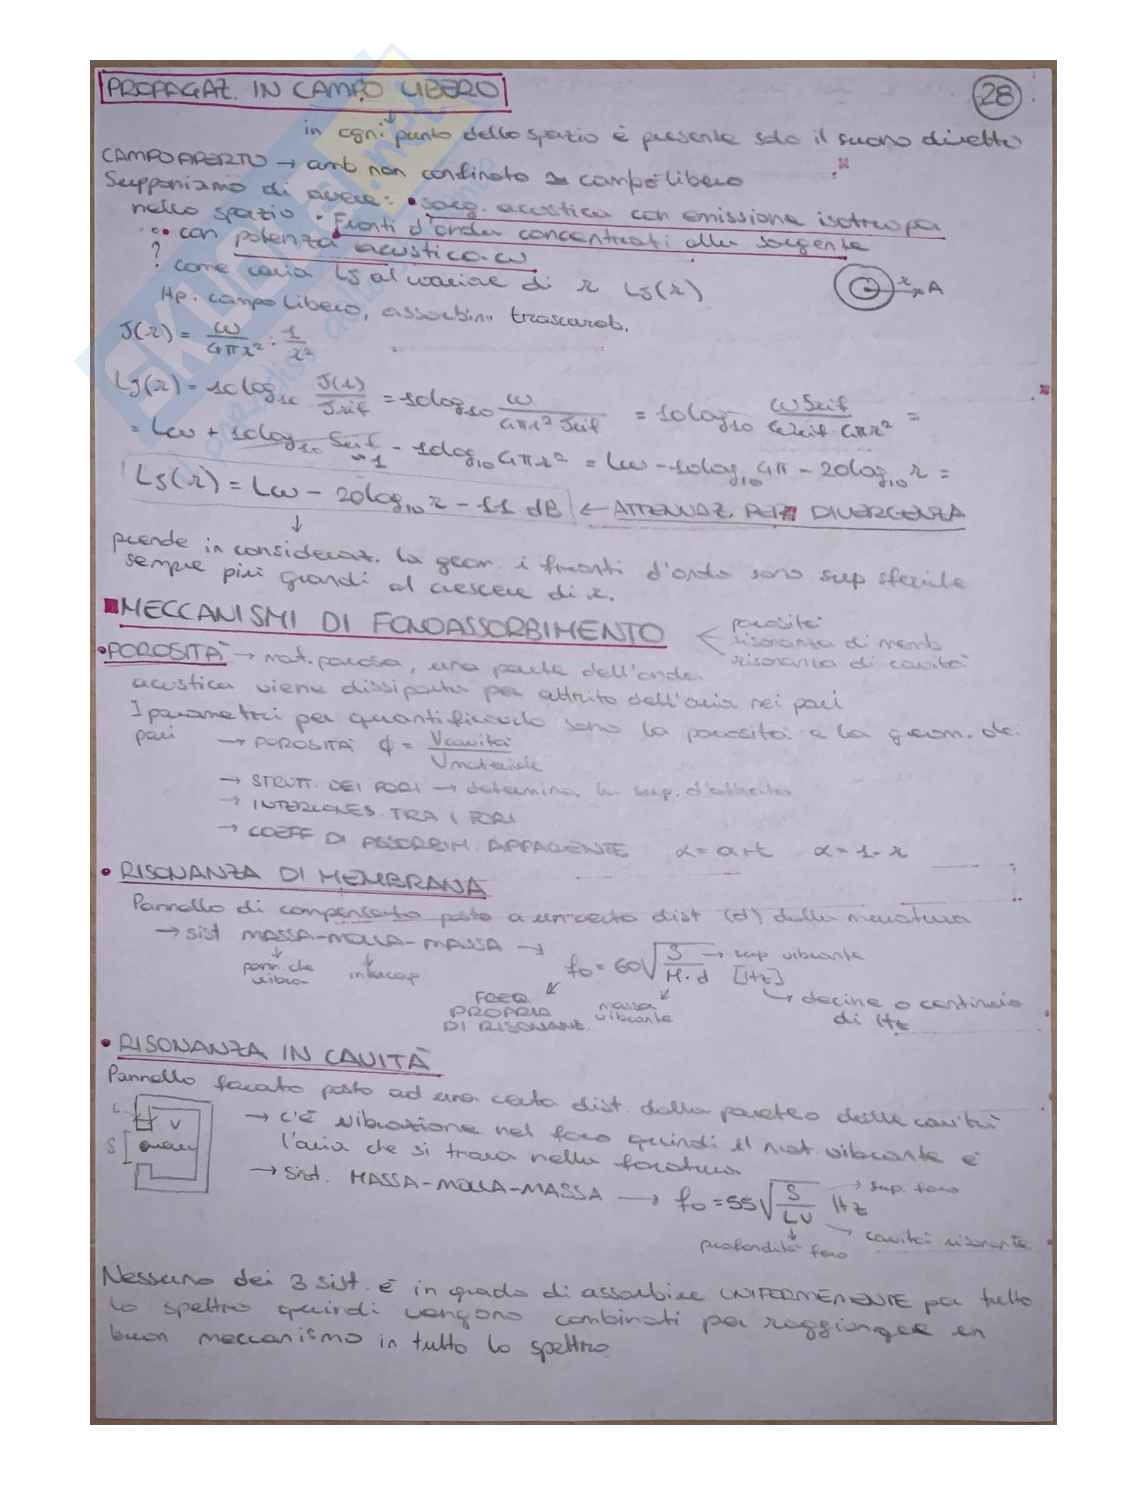 PROPAGAZ. IN CAMPO LIBERO
28
in ogni punto dello spazio è presente solo il suono diretto
CAMPO APERTO → amb non confinato ≃ campo libero
Supponiamo di avere: • sorg. acustica con emissione isotropa
nello spazio • Fronti d'onda concentrati alla sorgente
• con potenza acustica ω
? come varia LJ al variare di r LJ(r)
r A
Hp. campo libero, assorbim trascurab.
J(r) = ω / 4πr² ÷ 1 / r²
LJ(r) = 10 log10 J(r) / Jrif = 10 log10 ω / 4πr² Jrif = 10 log10 ω Srif / ωrif 4πr² =
= Lω + 10 log10 Srif - 10 log10 4πr² = Lω - 10 log10 4π - 20 log10 r =
≈1
LJ(r) = Lω - 20 log10 r - 11 dB ← ATTENUAZ. PER DIVERGENZA
prende in consideraz. la geom. i fronti d'onda sono sup sferiche
sempre più grandi al crescere di r.
MECCANISMI DI FONOASSORBIMENTO
porosità
risonanza di memb
risonanza di cavità
• POROSITÀ → mat. poroso, una parte dell'onda
acustica viene dissipata per attrito dell'aria nei pori
I parametri per quantificarlo sono la porosità e la geom. dei
pori → POROSITÀ ϕ = Vcavità / Vmateriale
→ STRUTT. DEI FORI → determina la sup. d'attrito
→ INTERCONES. TRA I FORI
→ COEFF DI ASSORBIM. APPARENTE α = a+t α = 1-r
• RISONANZA DI MEMBRANA
Pannello di compensato posto a un certa dist (d) dalla muratura
→ sist MASSA-MOLLA-MASSA → f0 = 60 √ S / M·d [Hz]
→ sup vibrante
pann. che vibra
intercap
FREQ PROPRIA DI RISONANZ.
massa vibrante
→ decine o centinaia di Hz
• RISONANZA IN CAVITÀ
Pannello forato posto ad una certa dist. dalla parete delle cavità
L V
S
→ c'è vibrazione nel foro quindi il mat. vibrante è
l'aria che si trova nella foratura
→ sist. MASSA-MOLLA-MASSA → f0 = 55 √ S / LV Hz
→ sup. foro
→ cavità risonante
profondità foro
Nessuno dei 3 sist. è in grado di assorbire UNIFORMEMENTE per tutto
lo spettro quindi vengono combinati per raggiungere un
buon meccanismo in tutto lo spettro